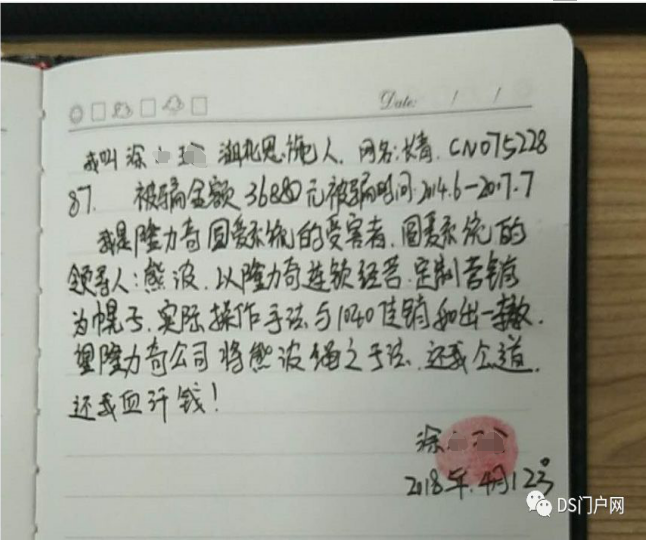 Date: / /
我叫涂 湖北恩施人. 网名:长青. CN075228
87. 被骗金额36880元被骗时间2014.6-2017.7
我是隆力奇圆爱系统的受害者. 圆爱系统的
领导人:熊波. 以隆力奇连锁经营. 定制营销
为幌子. 实际操作手法与1040传销如出一辙.
望隆力奇公司将熊波绳之于法. 还我公道.
还我血汗钱!
涂
2018年.4月12号
DS门户网